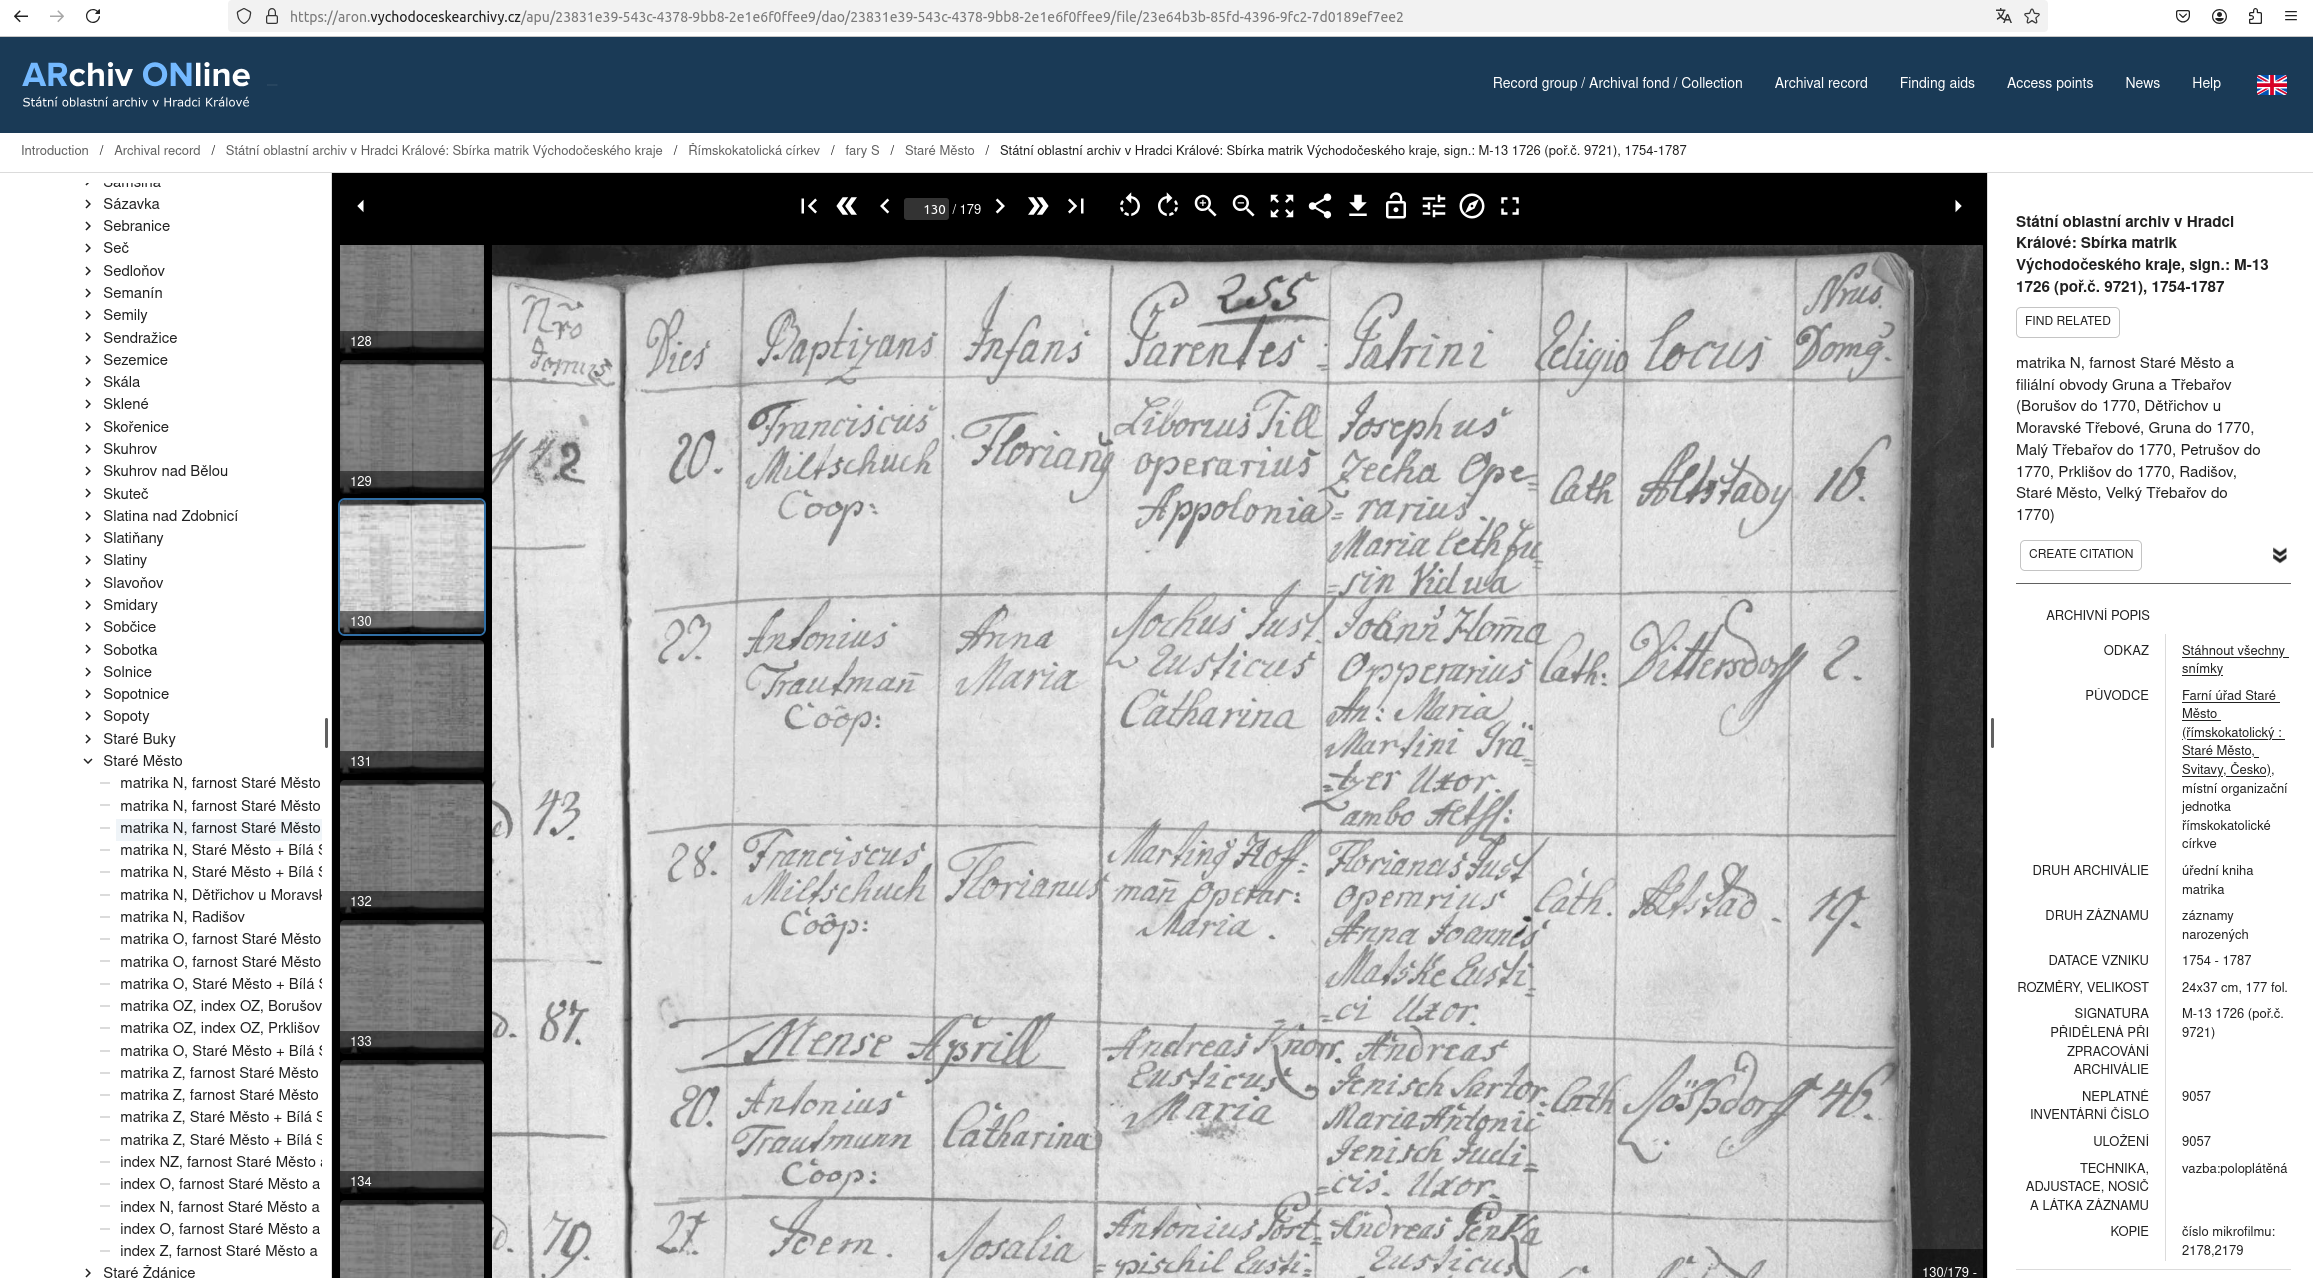 https://aron.vychodoceskearchivy.cz/apu/23831e39-543c-4378-9bb8-2e1e6f0ffee9/dao/23831e39-543c-4378-9bb8-2e1e6f0ffee9/file/23e64b3b-85fd-4396-9fc2-7d0189ef7ee2
ARchiv ONline
Státní oblastní archiv v Hradci Králové
Record group / Archival fond / Collection
Archival record
Finding aids
Access points
News
Help
Introduction / Archival record / Státní oblastní archiv v Hradci Králové: Sbírka matrik Východočeského kraje / Římskokatolická církev / fary S / Staré Město / Státní oblastní archiv v Hradci Králové: Sbírka matrik Východočeského kraje, sign.: M-13 1726 (poř.č. 9721), 1754-1787
Samšina
Sázavka
Sebranice
Seč
Sedloňov
Semanín
Semily
Sendražice
Sezemice
Skála
Sklené
Skořenice
Skuhrov
Skuhrov nad Bělou
Skuteč
Slatina nad Zdobnicí
Slatiňany
Slatiny
Slavoňov
Smidary
Sobčice
Sobotka
Solnice
Sopotnice
Sopoty
Staré Buky
Staré Město
matrika N, farnost Staré Město
matrika N, farnost Staré Město
matrika N, farnost Staré Město
matrika N, Staré Město + Bílá S
matrika N, Staré Město + Bílá S
matrika N, Dětřichov u Moravsk
matrika N, Radišov
matrika O, farnost Staré Město
matrika O, farnost Staré Město
matrika O, Staré Město + Bílá S
matrika OZ, index OZ, Borušov
matrika OZ, index OZ, Prklišov
matrika O, Staré Město + Bílá S
matrika Z, farnost Staré Město
matrika Z, farnost Staré Město
matrika Z, Staré Město + Bílá S
matrika Z, Staré Město + Bílá S
index NZ, farnost Staré Město a
index O, farnost Staré Město a
index N, farnost Staré Město a
index O, farnost Staré Město a
index Z, farnost Staré Město a
Staré Ždánice
130 / 179
128
129
130
131
132
133
134
Nro
Domus
2
43.
87.
79.
255
Dies
Baptizans
Infans
Parentes
Patrini
Religio
Locus
Nrus
Domg.
20.
Franciscus
Miltschuch
Coop:
Floriang
Liborius Till
operarius
Appolonia
Josephus
Zecha Ope=
=rarius
Maria
=rin Vidua
Cath
Altstady
16.
23.
Antonius
Trautmañ
Coop:
Anna
Maria
Rochus Just
Rusticus
Catharina
Joann
Opperarius
An: Maria
Martini Irä=
=tzer Uxor.
ambo
Cath:
Dittersdorff
2.
28.
Franciscus
Miltschuch
Coop:
Florianus
Marting Hoff=
mañ Operar:
Maria.
Florianus Just
Operarius
Anna Joannis
Matske Rusti=
=ci Uxor.
Cath.
Altstad
19.
Mense Aprill
20.
Antonius
Trautmann
Coop:
Catharina
Andreas Knorr.
Rusticus
Maria
Andreas
Jenisch Sartor.
Maria Antonii
Jenisch Judi=
=cis. Uxor.
Cath
46.
27.
Idem.
Rosalia
Antonius Port=
=pischil Rusti=
Andreas Penka
Rusticus
130/179 -
Státní oblastní archiv v Hradci
Králové: Sbírka matrik
Východočeského kraje, sign.: M-13
1726 (poř.č. 9721), 1754-1787
FIND RELATED
matrika N, farnost Staré Město a
filiální obvody Gruna a Třebařov
(Borušov do 1770, Dětřichov u
Moravské Třebové, Gruna do 1770,
Malý Třebařov do 1770, Petrušov do
1770, Prklišov do 1770, Radišov,
Staré Město, Velký Třebařov do
1770)
CREATE CITATION
ARCHIVNÍ POPIS
ODKAZ
Stáhnout všechny
snímky
PŮVODCE
Farní úřad Staré
Město
(římskokatolický :
Staré Město,
Svitavy, Česko),
místní organizační
jednotka
římskokatolické
církve
DRUH ARCHIVÁLIE
úřední kniha
matrika
DRUH ZÁZNAMU
záznamy
narozených
DATACE VZNIKU
1754 - 1787
ROZMĚRY, VELIKOST
24x37 cm, 177 fol.
SIGNATURA
PŘIDĚLENÁ PŘI
ZPRACOVÁNÍ
ARCHIVÁLIE
M-13 1726 (poř.č.
9721)
NEPLATNÉ
INVENTÁRNÍ ČÍSLO
9057
ULOŽENÍ
9057
TECHNIKA,
ADJUSTACE, NOSIČ
A LÁTKA ZÁZNAMU
vazba:poloplátěná
KOPIE
číslo mikrofilmu:
2178,2179